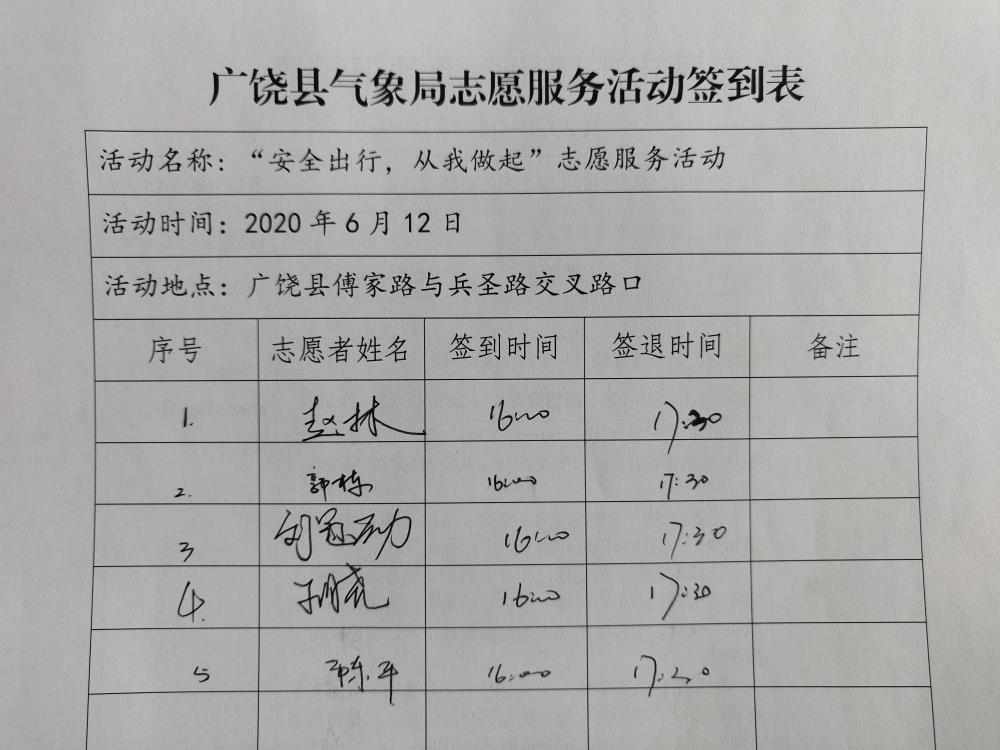 广饶县气象局志愿服务活动签到表
活动名称：“安全出行，从我做起”志愿服务活动
活动时间：2020 年 6 月 12 日
活动地点：广饶县傅家路与兵圣路交叉路口
序号 志愿者姓名 签到时间 签退时间 备注
1. 赵林 16:00 17:30
2. 郭栋 16:00 17:30
3 16:00 17:30
4. 16:00 17:30
5 16:00 17:30